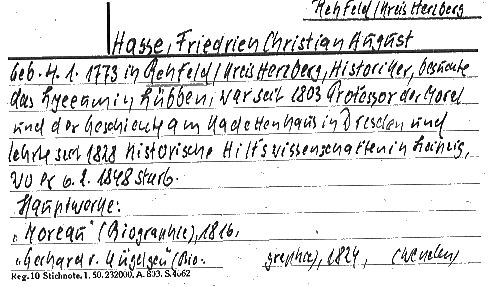 Rehfeld/Kreis Herzberg
Hasse, Friedrich Christian August
Geb. 4. 1. 1773 in Rehfeld/Kreis Herzberg, Historiker, besuchte
das Lyceum in Lübben, war seit 1803 Professor der Moral
und der Geschichte am Kadettenhaus in Dresden und
lehrte seit 1828 historische Hilfswissenschaften in Leipzig,
wo er 6. 2. 1848 starb.
Hauptwerke:
„Moreau" (Biographie), 1816,
„Gerhard v. Kügelgen (Bio- graphie), 1824,
Reg. 10 Stichnote. 1. 50. 232000. A. 893. S. 4062